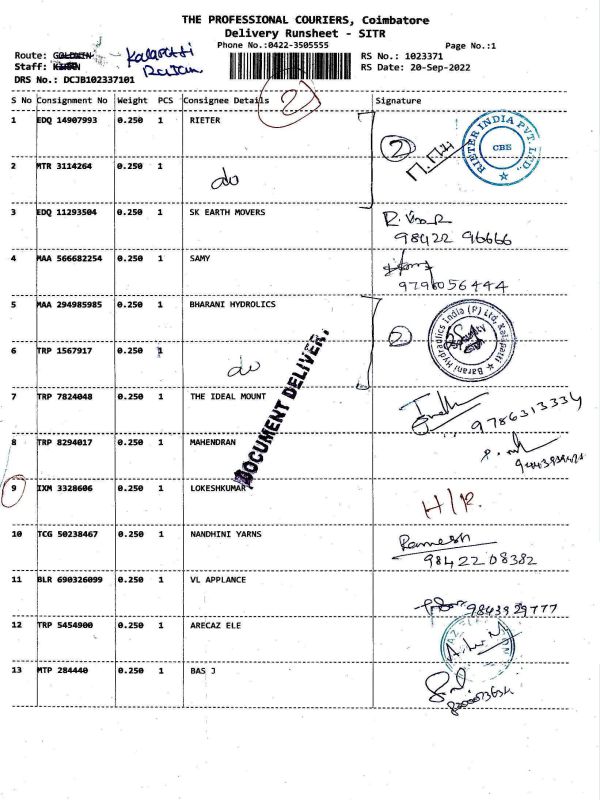 THE PROFESSIONAL COURIERS, Coimbatore
Delivery Runsheet - SITR
Phone No.:0422-3505555
Page No.:1
Route: GOLDWIN Kalapatti
RS No.: 1023371
Staff: Rajan
RS Date: 20-Sep-2022
DRS No.: DCJB102337101
S No Consignment No Weight PCS Consignee Details 2 Signature
1 EDQ 14907993 0.250 1 RIETER
2 RIETER INDIA PVT. LTD., CBE
2 MTR 3114264 0.250 1 do
3 EDQ 11293504 0.250 1 SK EARTH MOVERS
98422 96666
4 MAA 566682254 0.250 1 SAMY
9796056444
5 MAA 294985985 0.250 1 BHARANI HYDROLICS
2 Barani Hydraulics India (P) Ltd, Kalapatti SECURITY
6 TRP 1567917 0.250 1 do
DOCUMENT DELIVER.
7 TRP 7824048 0.250 1 THE IDEAL MOUNT
9786313334
8 TRP 8294017 0.250 1 MAHENDRAN
9 IXM 3328606 0.250 1 LOKESHKUMAR
H/R.
10 TCG 50238467 0.250 1 NANDHINI YARNS
Ramesh
98422 08382
11 BLR 690326099 0.250 1 VL APPLANCE
9843929777
12 TRP 5454900 0.250 1 ARECAZ ELE
13 MTP 284440 0.250 1 BAS J